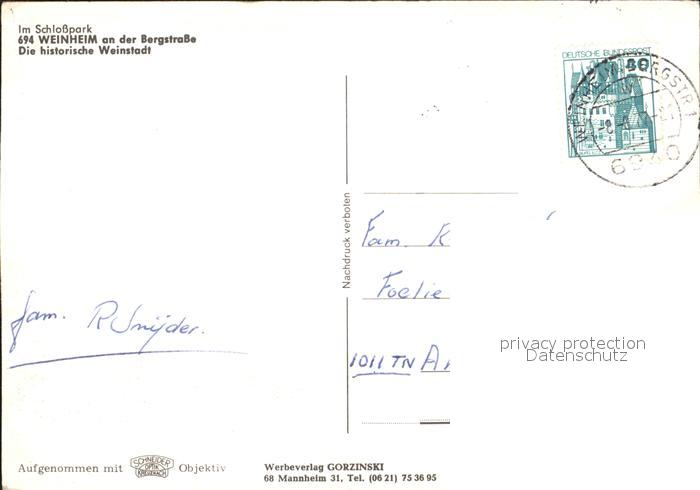 Im Schloßpark
694 WEINHEIM an der Bergstraße
Die historische Weinstadt
DEUTSCHE BUNDESPOST
40
WEINHEIM, BERGSTR 1
6940
Nachdruck verboten
Fam. K
Foelie
1011 TN A
fam. R Snijder.
privacy protection
Datenschutz
Aufgenommen mit SCHNEIDER OPTIK KREUZNACH Objektiv
Werbeverlag GORZINSKI
68 Mannheim 31, Tel. (06 21) 75 36 95